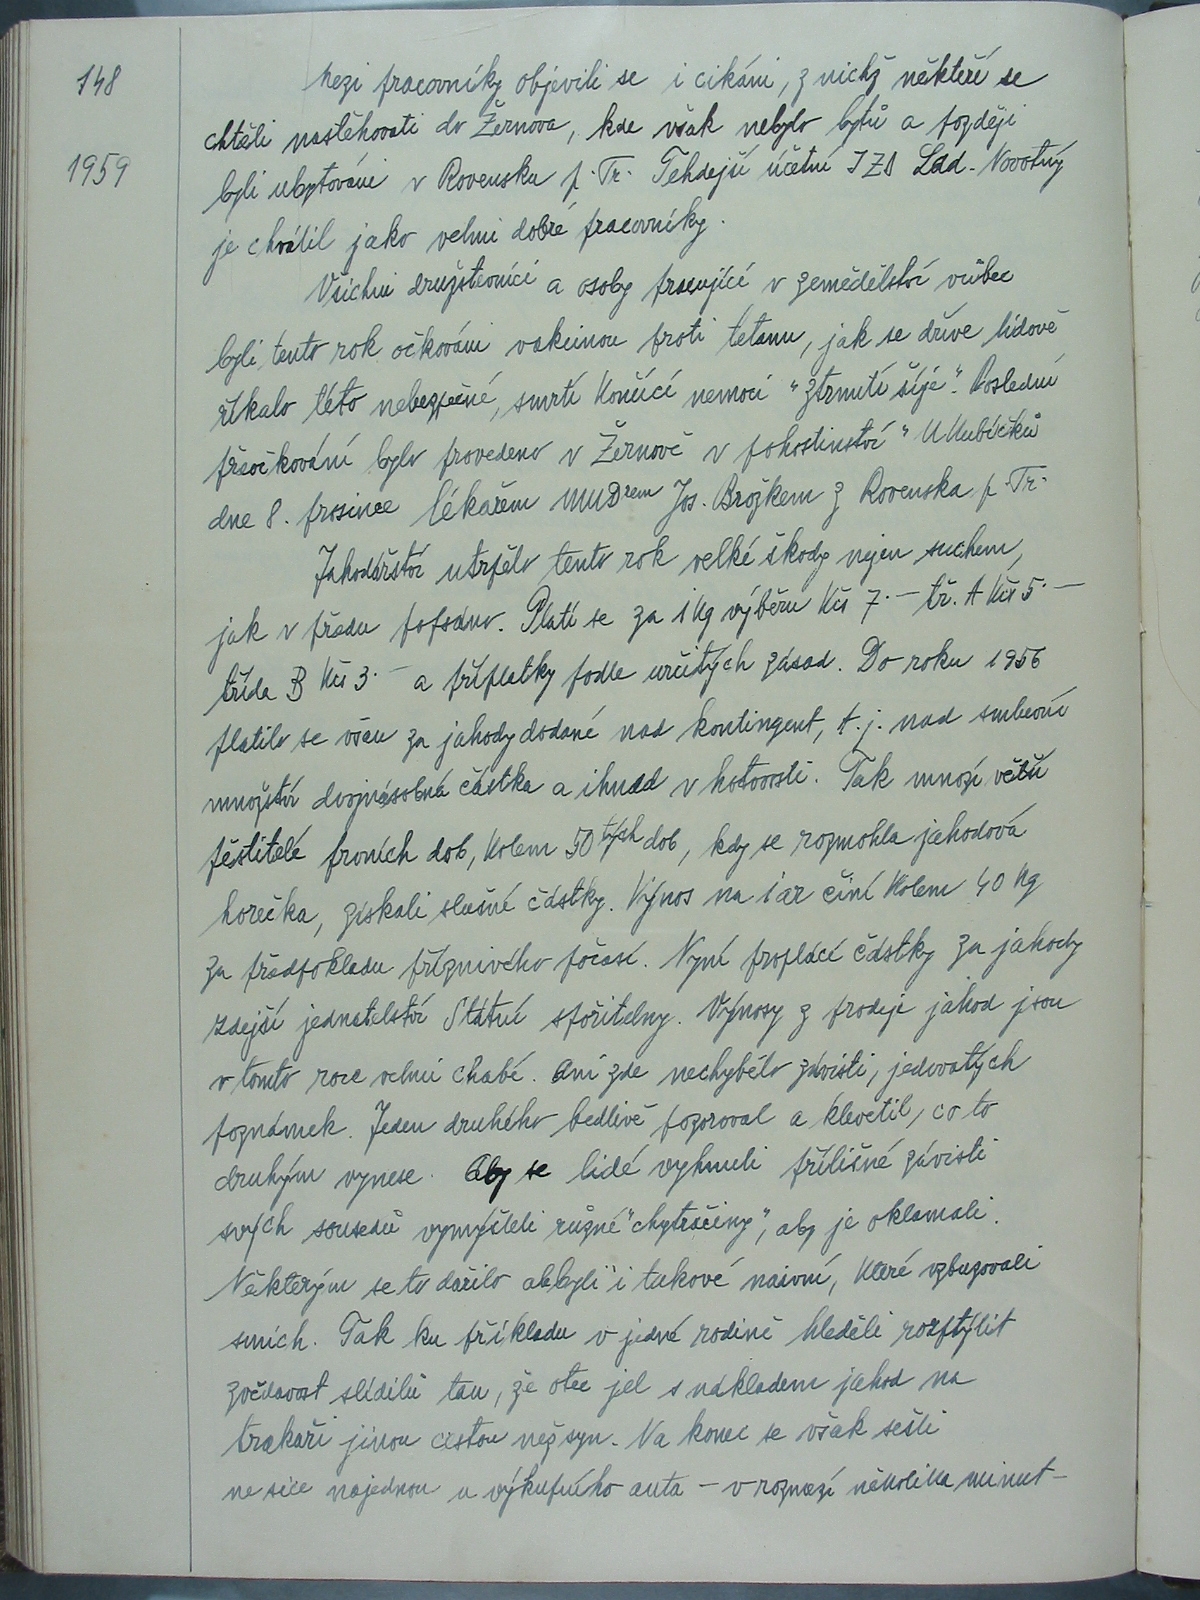 148
Mezi pracovníky objevili se i cikáni, z nichž někteří se
1959
chtěli nastěhovati do Žernova, kde však nebylo bytů a později
byli ubytováni v Rovensku p. Tr. Tehdejší účetní JZD Lad. Novotný
je chválil jako velmi dobré pracovníky.
Všichni družstevníci a osoby pracující v zemědělství vůbec
byli tento rok očkováni vakcinou proti tetanu, jak se dříve lidově
říkalo této nebezpečné, smrtí končící nemoci "ztrnutí šíje". Poslední
přeočkování bylo provedeno v Žernově v pohostinství "U Kubíčků
dne 8. prosince lékařem MUDrem Jos. Brožkem z Rovenska p. Tr.
Jahodářství utrpělo tento rok velké škody nejen suchem,
jak v předu popsáno. Platí se za 1 kg výběru Kčs 7.— tř. A Kčs 5.—
třída B Kčs 3.— a příplatky podle určitých zásad. Do roku 1956
platilo se všem za jahody dodané nad kontingent, t.j. nad smluvní
množství dvojnásobná částka a ihned v hotovosti. Tak mnozí větší
pěstitelé prvních dob, kolem 50tých dob, kdy se rozmohla jahodová
horečka, získali slušné částky. Výnos na 1 ar činí kolem 40 kg
za předpokladu příznivého počasí. Nyní proplácí částky za jahody
zdejší jednatelství Státní spořitelny. Výnosy z prodeje jahod jsou
v tomto roce velmi chabé. Ani zde nechybělo závisti, jedovatých
poznámek. Jeden druhého bedlivě pozoroval a klevetil, co to
druhým vynese. Aby se lidé vyhnuli přílišné závisti
svých sousedů vymýšleli různé "chytračiny", aby je oklamali.
Některým se to dařilo ale byli i takové naivní, které vzbuzovali
smích. Tak ku příkladu v jedné rodině hleděli rozptýlit
zvědavost slídilů tau, že otec jel s nákladem jahod na
trakaři jinou cestou než syn. Na konec se však sešli
ne sice najednou u výkupního auta – v rozmezí několika minut –